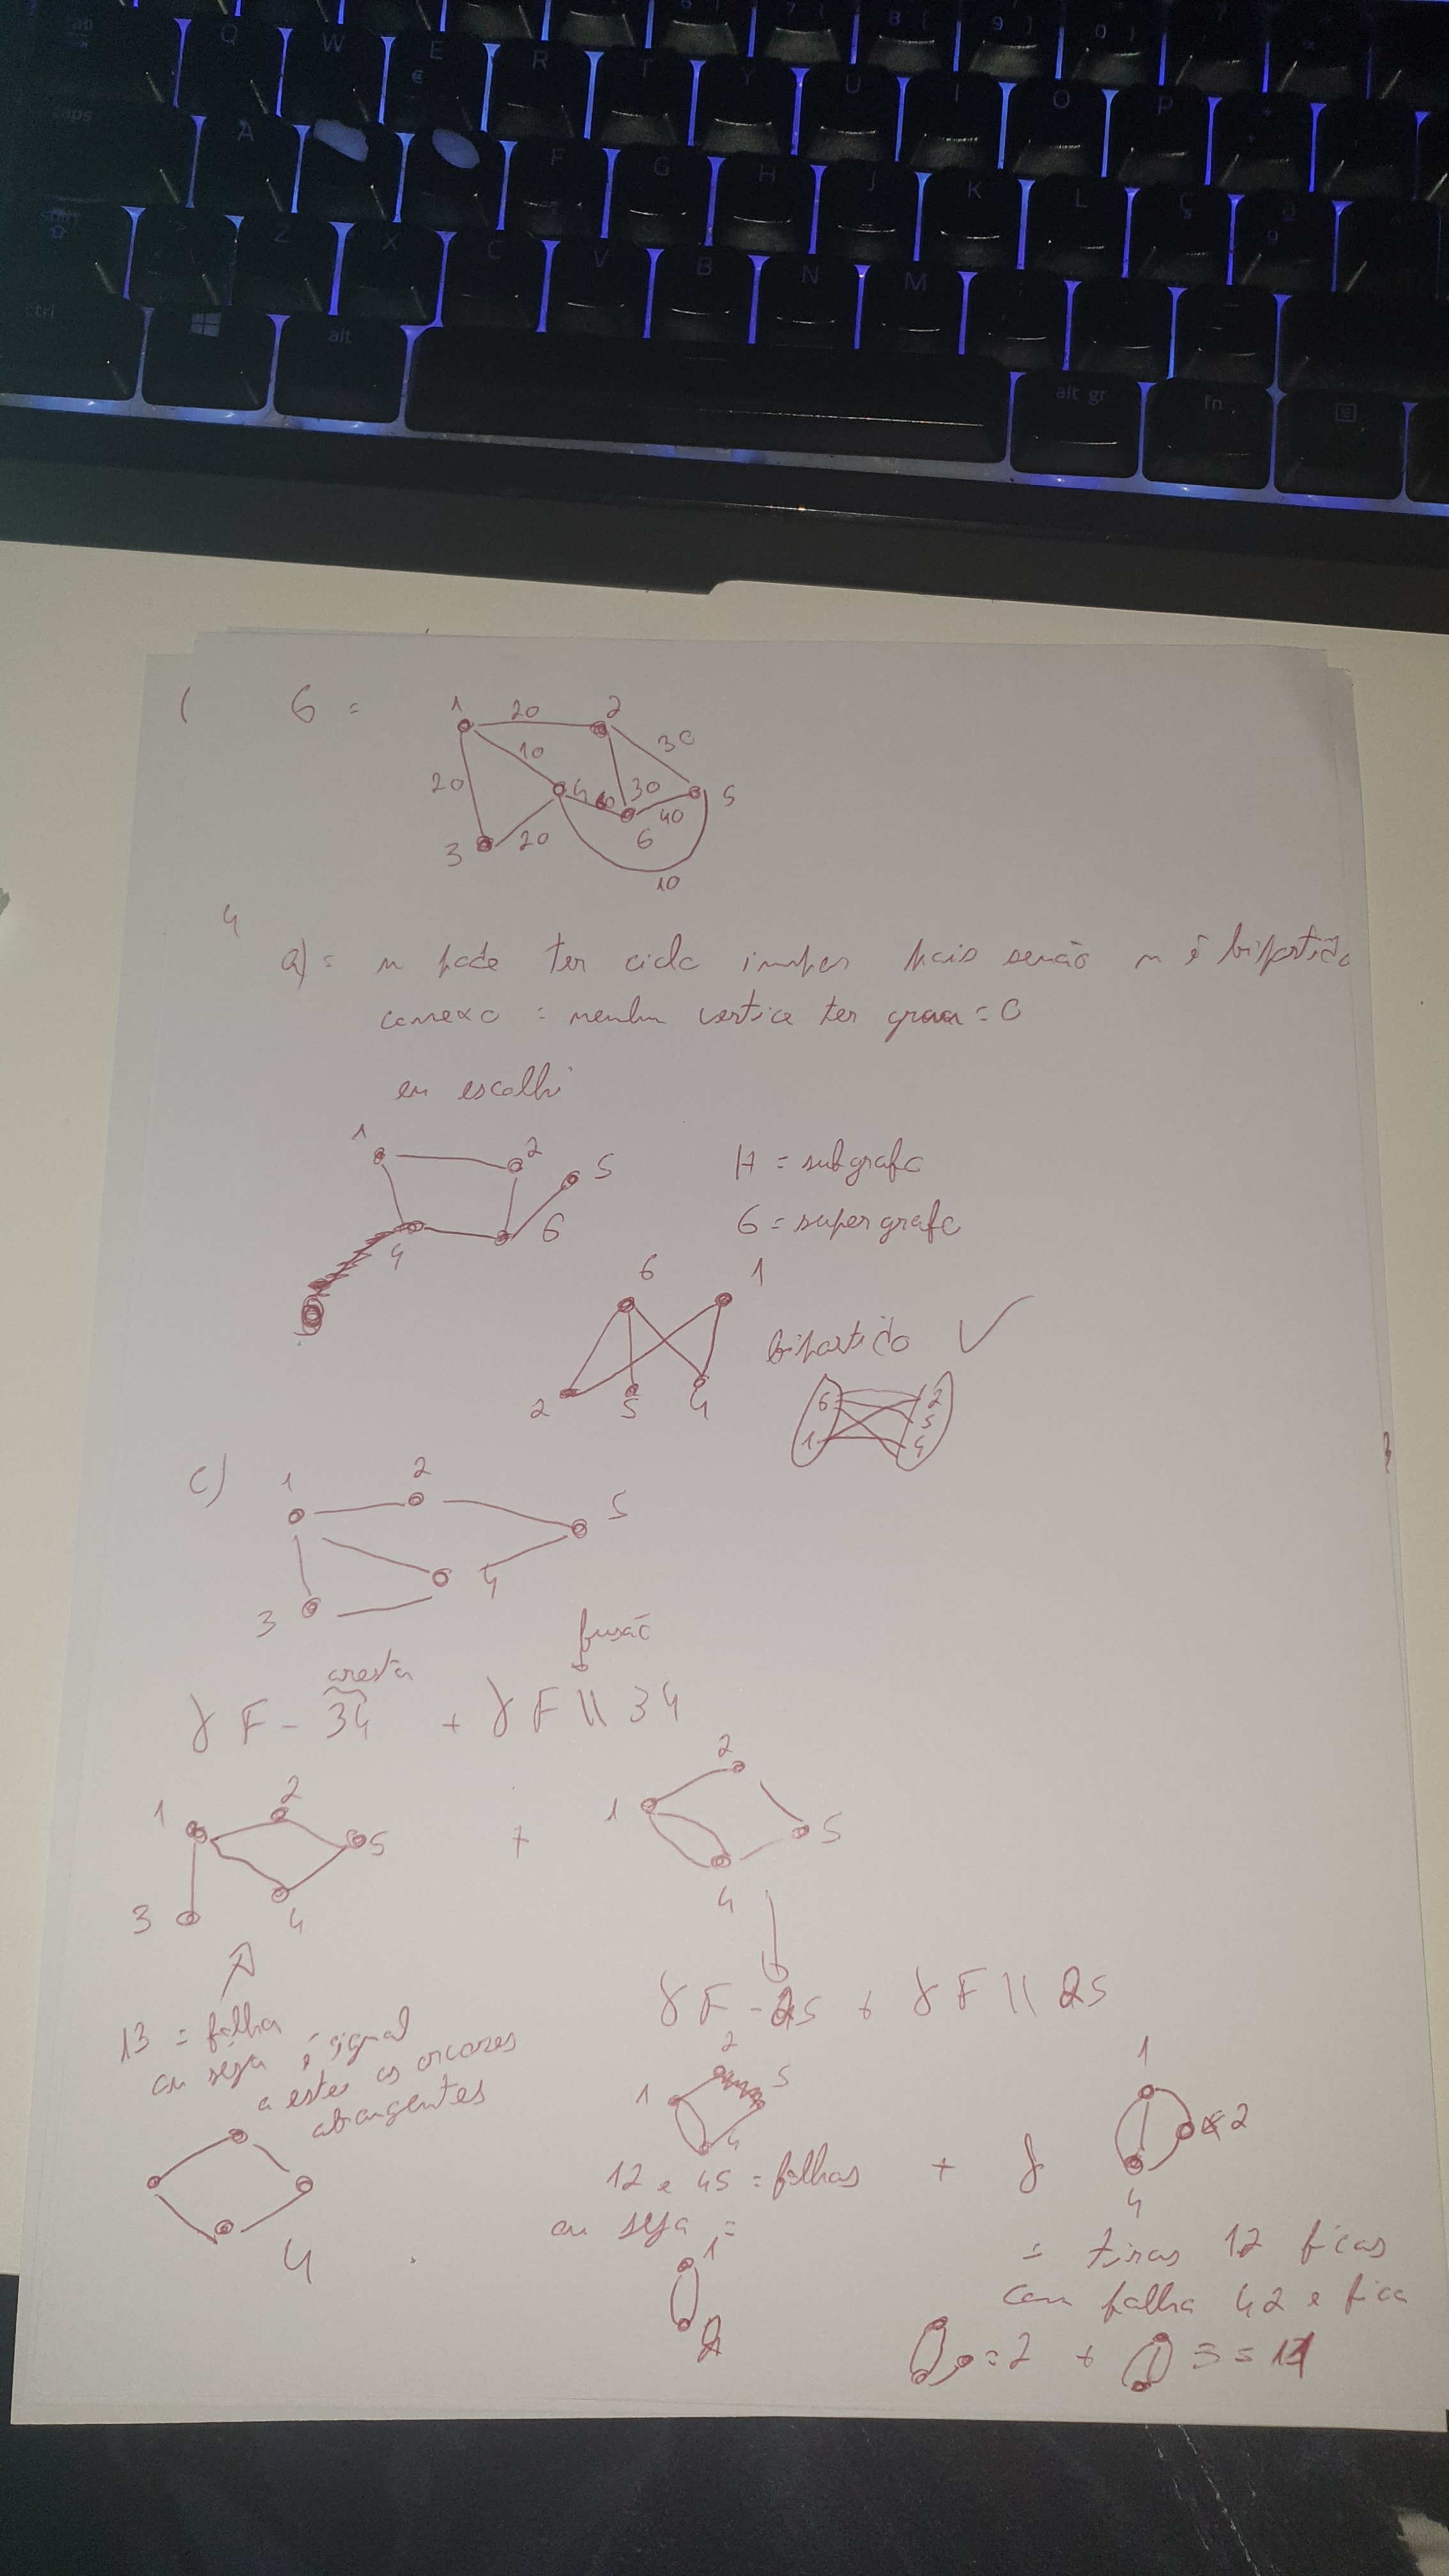 Q W E R T Y U I O P
€
caps A F G H J K L Ç
shift Z X C V B N M
ctrl alt alt gr fn
1 G =
1 20 2
10 30
20 4 60 30 5
40
3 20 6
10
4
a) = n pode ter ciclo impar mais senão n é bipartido
conexo = nenhum vertice ter grau = 0
eu escolhi
1 2 5 H = subgrafo
4 6 G = supergrafo
6 1
bipartido ✓
2 5 4
6 2
5
1 4
c) 1 2 5
4
3
fusão
aresta
γ F - 34 + γ F \\ 34
1 2 5 + 1 2 5
3 4 4
γ F - 25 + γ F \\ 25
13 = folha
ou seja é igual
a este as arvores
abrangentes
4
1 2 5
4
12 e 45 = folhas + γ
1
2
4
ou seja =
1
2
= tiras 12 ficas
com folha 42 e fica
= 2 + 3 = 11